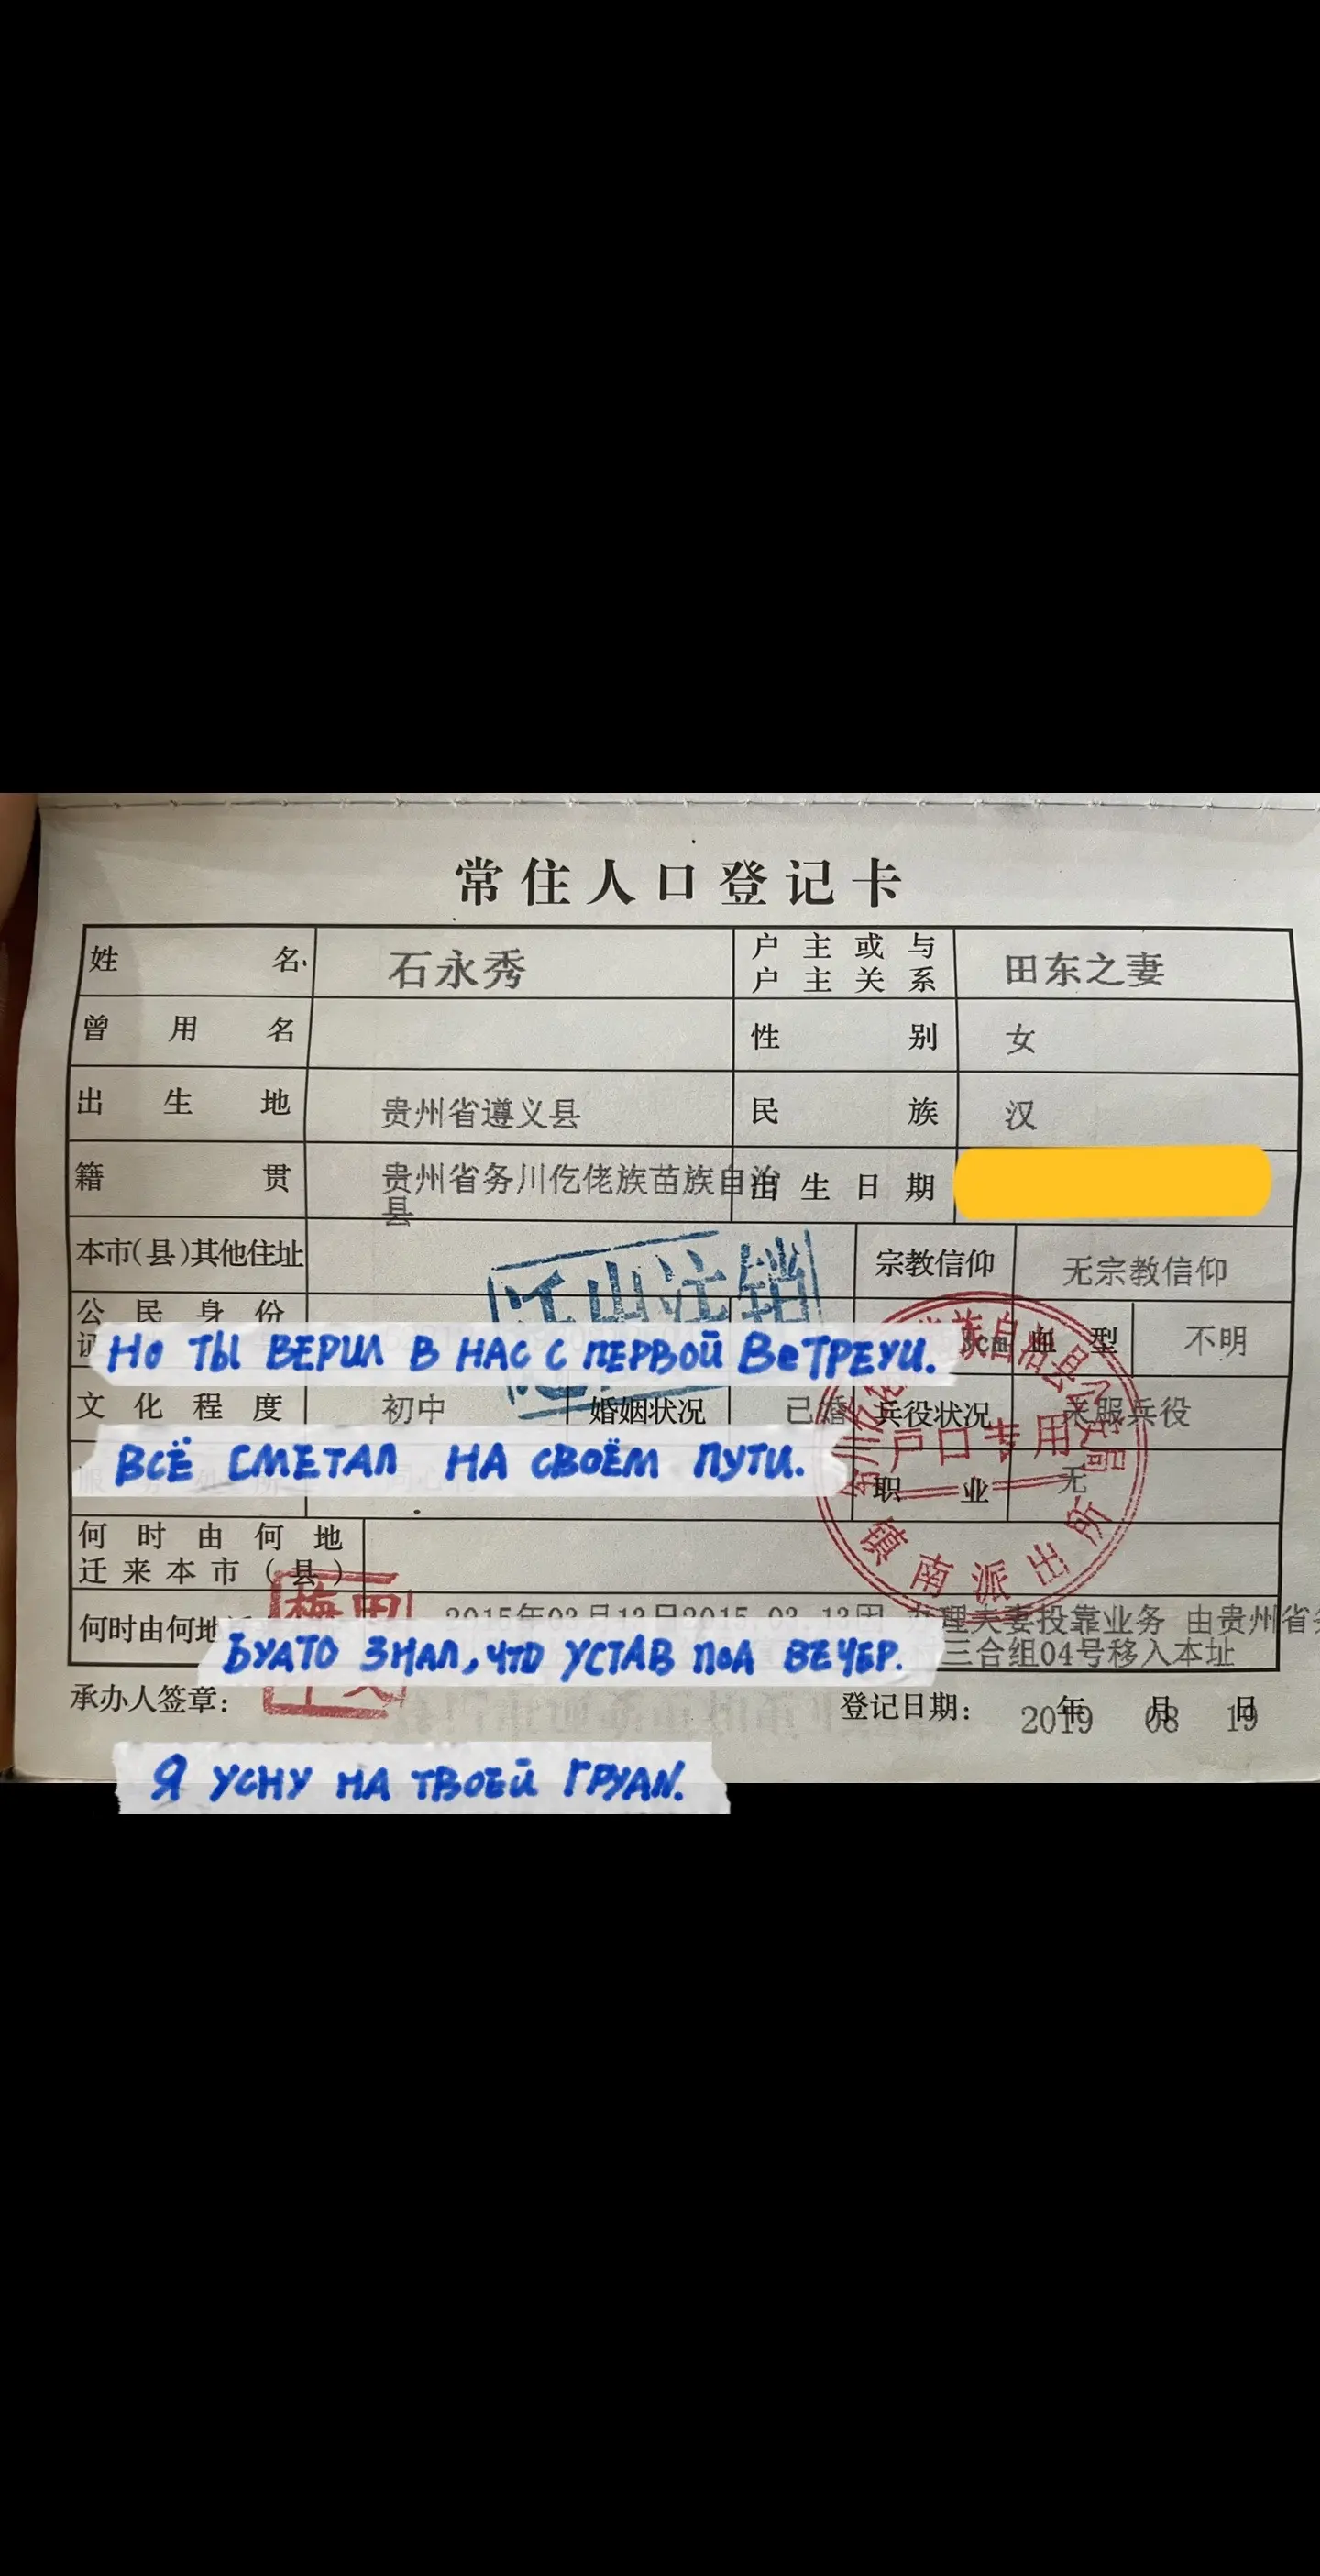 常住人口登记卡
姓 名 石永秀 户主或与户主关系 田东之妻
曾用名 性别 女
出生地 贵州省遵义县 民族 汉
籍贯 贵州省务川仡佬族苗族自治县 出生日期
本市(县)其他住址 宗教信仰 无宗教信仰
迁出注销
公民身份 血型 不明
НО ТЫ ВЕРИЛ В НАС С ПЕРВОЙ ВеТРЕЧИ.
文化程度 初中 婚姻状况 已婚 兵役状况 未服兵役
户口专用
ВСЁ СМЕТАЛ НА СВОЁМ ПУТИ.
职业 无
镇南派出所
何时由何地迁来本市(县)
何时由何地 2015年03月13日2015.03.13因 办理夫妻投靠业务 由贵州省
三合组04号移入本址
БУАТО ЗНАЛ, ЧТО УСТАВ ПОА ВЕЧЕР.
承办人签章: 登记日期: 2019年08月19日
Я УСНУ НА ТВОЕЙ ГРУАИ.